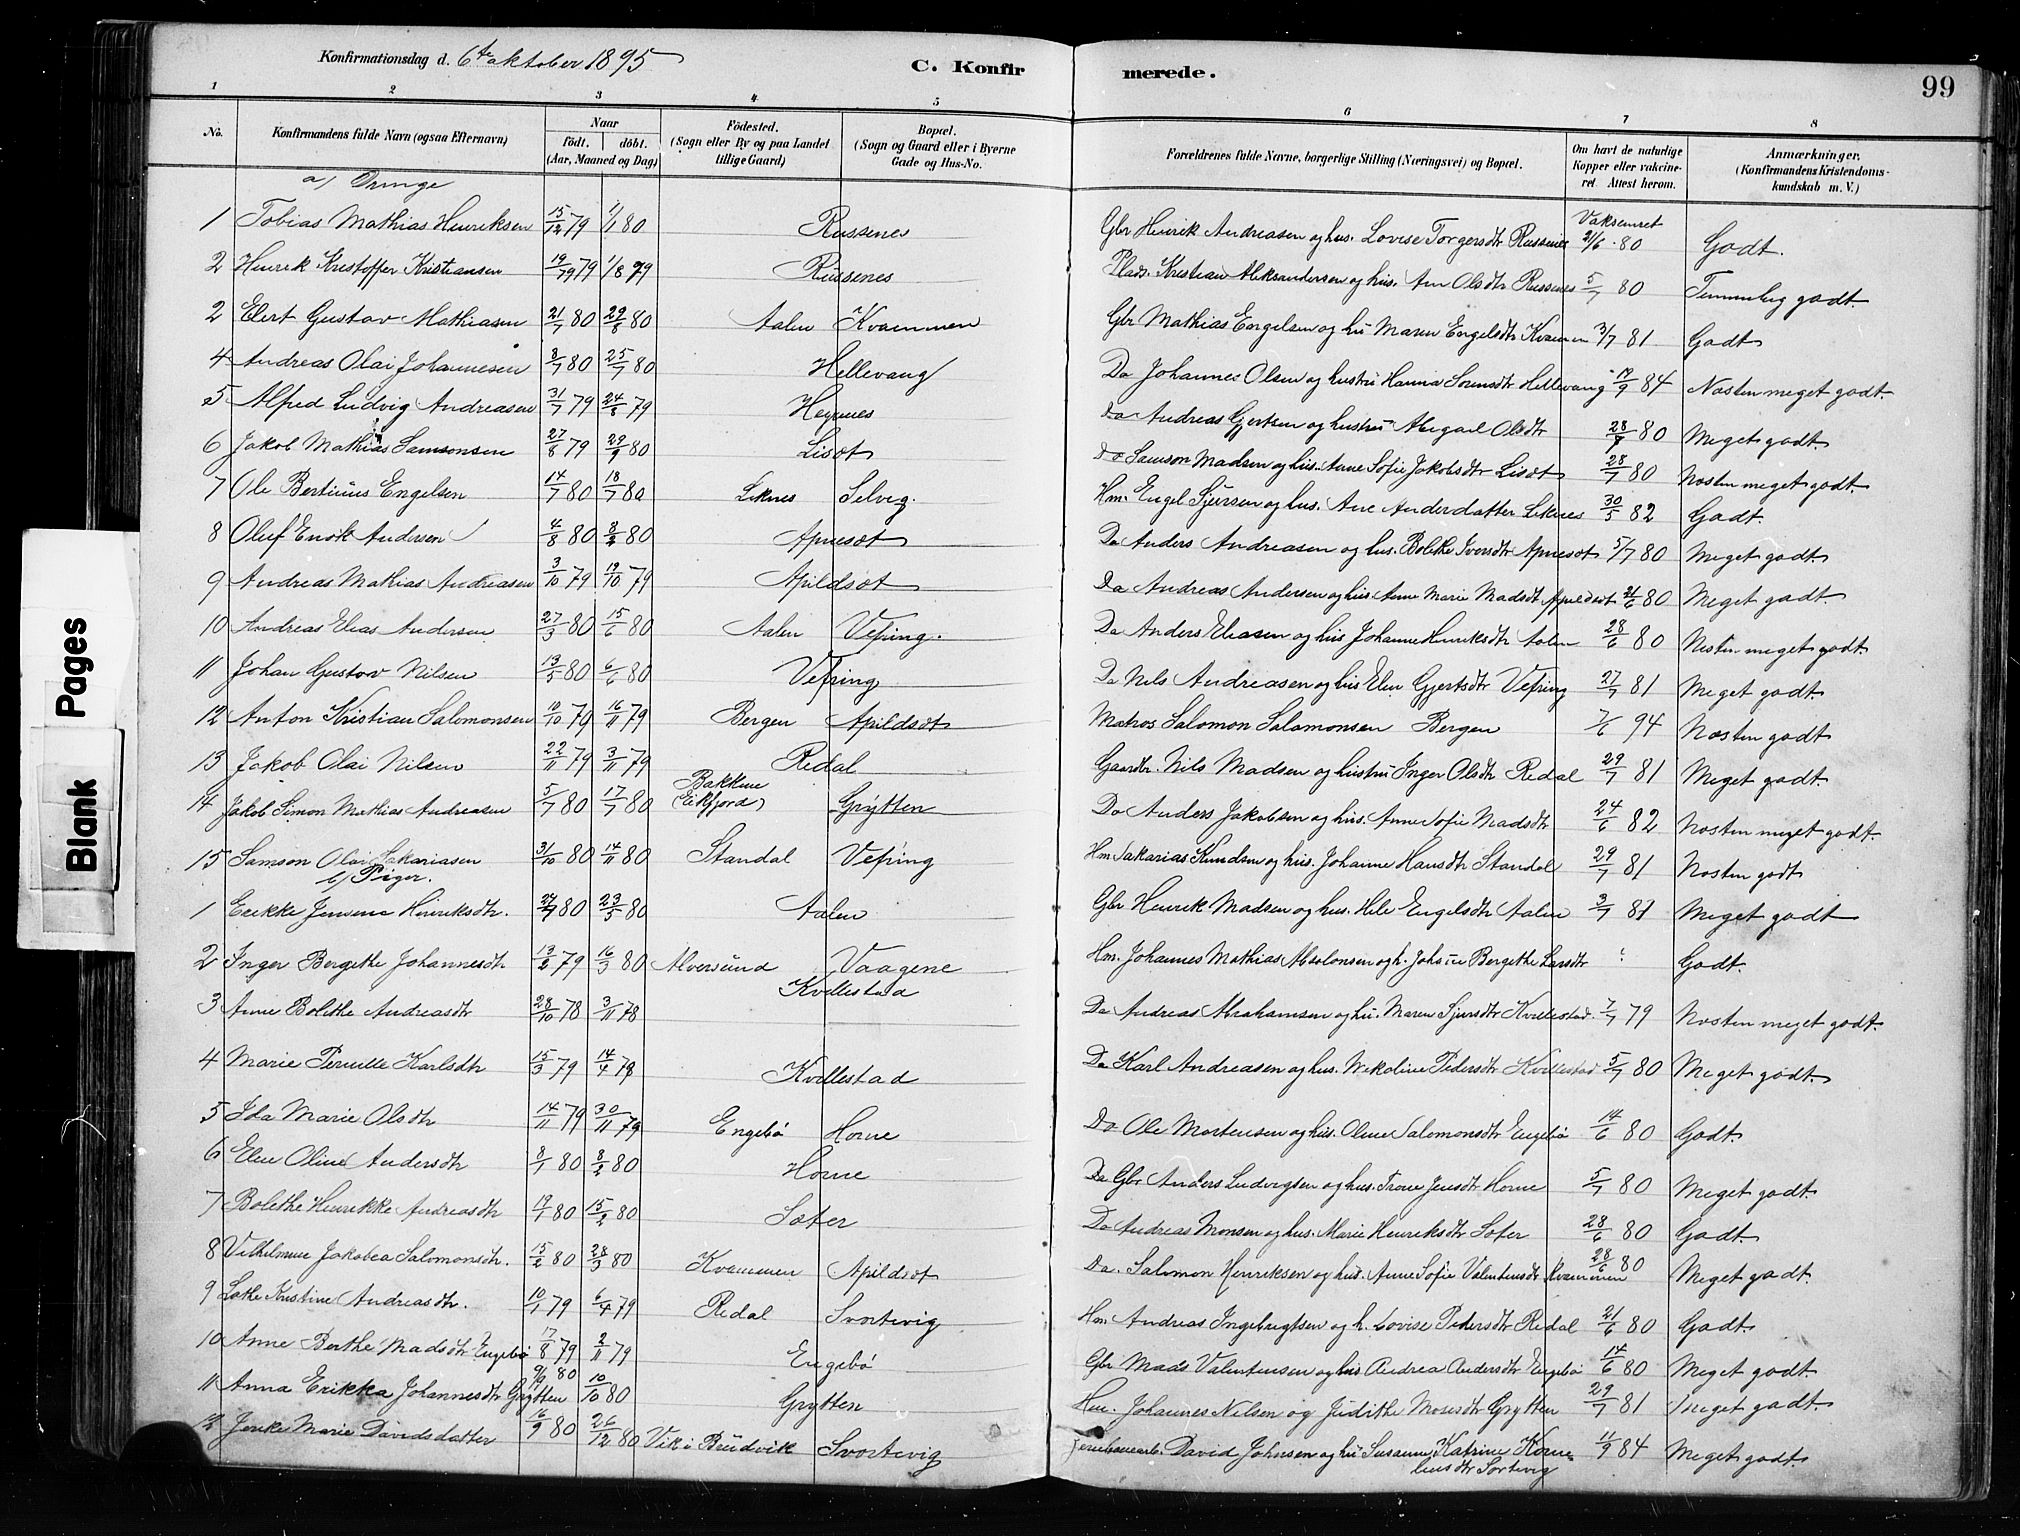 Konfirmationsdag d. 6te oktober 1895
C. Konfirmerede.
99
1 2 3 4 5 6 7 8
No.
Konfirmandens fulde Navn (ogsaa Efternavn)
Naar
födt. döbt.
(Aar, Maaned og Dag)
Födested.
(Sogn eller By og paa Landet
tillige Gaard)
Bopæl.
(Sogn og Gaard eller i Byerne
Gade og Hus-No.
Forældrenes fulde Navne, borgerlige Stilling (Næringsvei) og Bopæl.
Om havt de naturlige
Kopper eller vakcine-
ret. Attest herom.
Anmærkninger.
(Konfirmandens Kristendoms-
kundskab m. V.)
a) Drenge
1 Tobias Mathias Henriksen 15/12 79 1/1 80 Russenes Gbr Henrik Andreasen og hus. Lovise Torgersdtr Russenes Vaksineret 21/6 80 Godt.
2 Henrik Kristoffer Kristiansen 19/79 79 1/8 79 Russenes Plads. Kristian Aleksandersen og hus. Ane Olsdtr Russenes 5/7 80 Temmelig godt.
2 Elert Gustav Mathiasen 21/7 80 29/8 80 Aalen Kvammen Gbr Mathias Engelsen og hu Maren Engelsdtr Kvammen 3/7 81 Godt
4 Andreas Olai Johannesen 8/7 80 25/7 80 Hellevang Do Johannes Olsen og hustru Hanna Sorensdtr Hellevang 17/9 84 Næsten meget godt.
5 Alfred Ludvig Andreasen 31/7 79 24/8 79 Heynes Do Andreas Gjertsen og hustru Abigael Olsdtr 28/7 80 Meget godt.
6 Jakob Mathias Samsonsen 27/8 79 29/9 80 Lisæt Do Samson Madsen og hus. Anne Sofie Jakobsdtr Lisæt 28/7 80 Næsten meget godt.
7 Ole Bertinus Engelsen 14/7 80 18/7 80 Leknes Selvig. Hm. Engel Sjursen og hus. Ane Andersdatter Leknes 30/5 82 Godt.
8 Oluf Enok Andersen 4/8 80 8/8 80 Apnesæt Do Anders Andreasen og hus. Bolethe Iversdtr Apnesæt 5/7 80 Meget godt.
9 Andreas Mathias Andreasen 3/10 79 19/10 79 Apildsæt Do Andreas Andersen og hus. Anne Marie Madsdt Apildsæt 21/6 80 Meget godt.
10 Andreas Elias Andersen 27/3 80 15/6 80 Aalen Vefring. Do Anders Eliasen og hus Johanne Henriksdtr Aalen 28/6 80 Næsten meget godt.
11 Johan Gustav Nilsen 13/5 80 6/6 80 Vefring Do Nils Andreasen og hus Elen Gjertsdtr Vefring 27/7 81 Meget godt
12 Anton Kristian Salomonsen 10/10 79 16/11 79 Bergen Apildsæt Matros Salomon Salamonsen Bergen 7/6 94 Næsten godt
13 Jakob Olai Nilsen 22/11 79 3/11 79 Redal Gaardbr. Nils Madsen og hustru Inger Olsdtr Redal 29/7 81 Meget godt
14 Jakob Simon Mathias Andreasen 5/7 80 17/7 80 Bakkene (Eikfjord) Grytten Do Anders Jakobsen og hus. Anne Sofie Madsdtr 24/6 82 Næsten meget godt.
15 Samson Olai Sakariasen 31/10 80 14/11 80 Standal Vefring Hm Sakarias Knudsen og hus. Johanne Hansdtr Standal 29/7 81 Næsten godt
b) Piger.
1 Erikke Jensine Henriksdtr. 27/4 80 23/5 80 Aalen Gbr Henrik Madsen og hus. Hele Engelsdtr Aalen 3/7 81 Meget godt
2 Inger Bergithe Johannesdtr 13/2 79 16/3 80 Alversund Vaagene Hm. Johannes Mathias Absolonsen og h. Johanne Bergithe Larsdtr Godt.
3 Anne Bolethe Andreasdtr 28/10 78 3/11 78 Kvellestad Do Andreas Abrahamsen og hu. Maren Sjursdtr Kvellestad. 7/7 79 Næsten meget godt.
4 Marie Pernille Karlsdtr 15/3 79 14/4 79 Kvellestad Do Karl Andreasen og hus. Nekoline Pedersdtr Kvellestad 5/7 80 Meget godt.
5 Ida Marie Olsdtr 14/11 79 30/11 79 Engebø Horne Do Ole Mortensen og hus. Oline Salomonsdtr Engebø 14/6 80 Godt.
6 Elen Oline Andersdtr 8/1 80 8/2 80 Horne Do Gbr Anders Ludvigsen og hus. Trone Jensdtr Horne 5/7 80 Meget godt.
7 Bolethe Henrikke Andreasdtr 19/1 80 15/2 80 Sæter Do Andreas Monsen og hus. Marie Henriksdtr Sæter 28/6 80 Godt.
8 Vilhelmine Jakobea Salomonsdtr. 15/2 80 28/3 80 Kvammen Apildsæt Do. Salomon Henriksen og hus. Anne Sofie Valentinsdtr Kvammen 28/6 80 Meget godt.
9 Lothe Kristine Andreasdtr. 10/1 79 6/4 79 Redal Svortevig Hm Andreas Ingebrigtsen og h. Lovise Pedersdtr Redal 21/6 80 Godt.
10 Anne Berthe Madsdtr Engebø 17/8 79 2/11 79 Engebø Gbr Mads Valentinsen og hus Andrea Andersdtr Engebø 14/6 80 Meget godt.
11 Anna Erikka Johannesdtr Grytten 9/6 80 10/10 80 Grytten Hm. Johannes Nilsen og Judithe Mosesdtr Grytten 29/7 81 Meget godt.
12 Jenke Marie Davidsdatter 16/9 80 26/12 80 Vik i Brudvik Svortevig Jernbanearb. David Johnsen og hu Susanne Katrine Korne-
liusdtr Sortevig 11/9 84 Meget godt.
Blank Pages